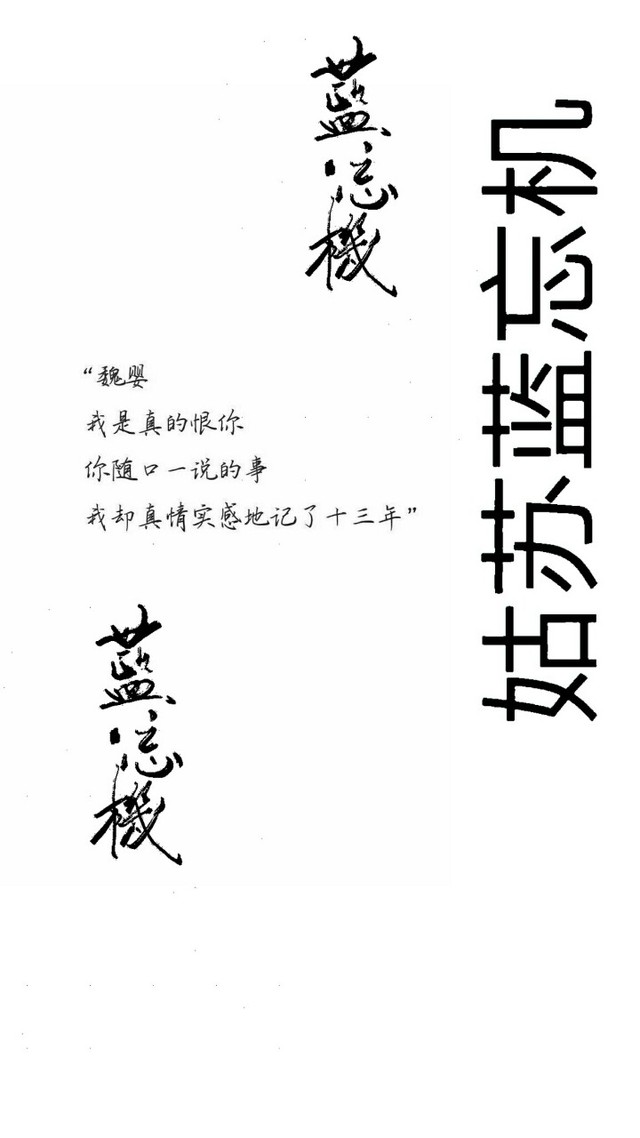 藍忘機
姑苏蓝忘机
“魏婴
我是真的恨你
你随口一说的事
我却真情实感地记了十三年”
藍忘機